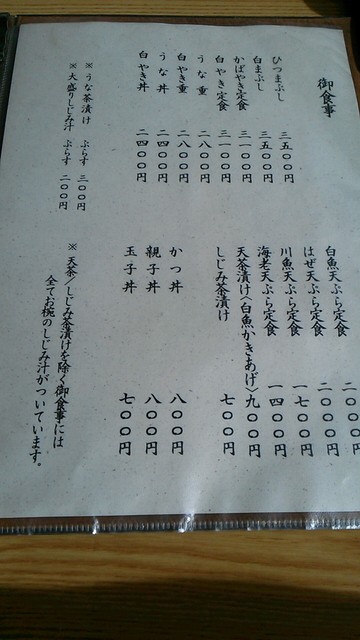 御食事
ひつまぶし 三五〇〇円
白まぶし 三五〇〇円
かばやき定食 三一〇〇円
白やき定食 三一〇〇円
うな重 二八〇〇円
白やき重 二八〇〇円
うな丼 二四〇〇円
白やき丼 二四〇〇円
※うな茶漬け ぷらす 三〇〇円
※大盛りしじみ汁 ぷらす 二〇〇円
白魚天ぷら定食
はぜ天ぷら定食 二〇〇〇円
川魚天ぷら定食 一七〇〇円
海老天ぷら定食 一四〇〇円
天茶漬け〈白魚、かきあげ〉 九〇〇円
しじみ茶漬け 七〇〇円
かつ丼 八〇〇円
親子丼 八〇〇円
玉子丼 七〇〇円
※天茶／しじみ茶漬けを除く御食事には
全てお椀のしじみ汁がついています。